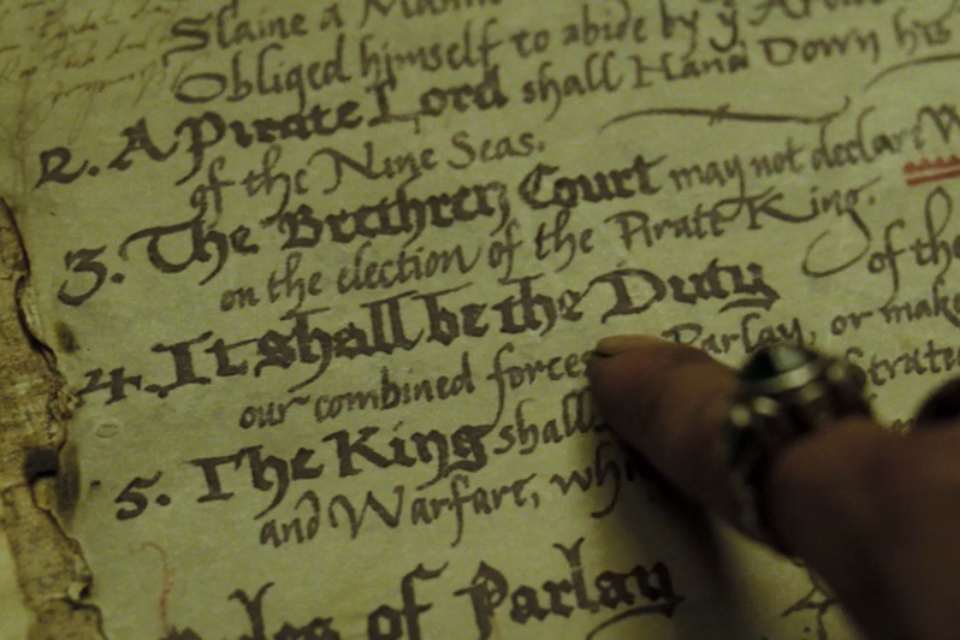 Slaine a
Obliged himself to abide by ẙ
2. A Pirate Lord shall Hand Down his
of the Nine Seas.
3. The Brethren Court may not declare
on the election of the Pirate King.
4. It shall be the Duty of the
our combined forces Parlay, or make
5. The King shall
and Warfare,
of Parlay